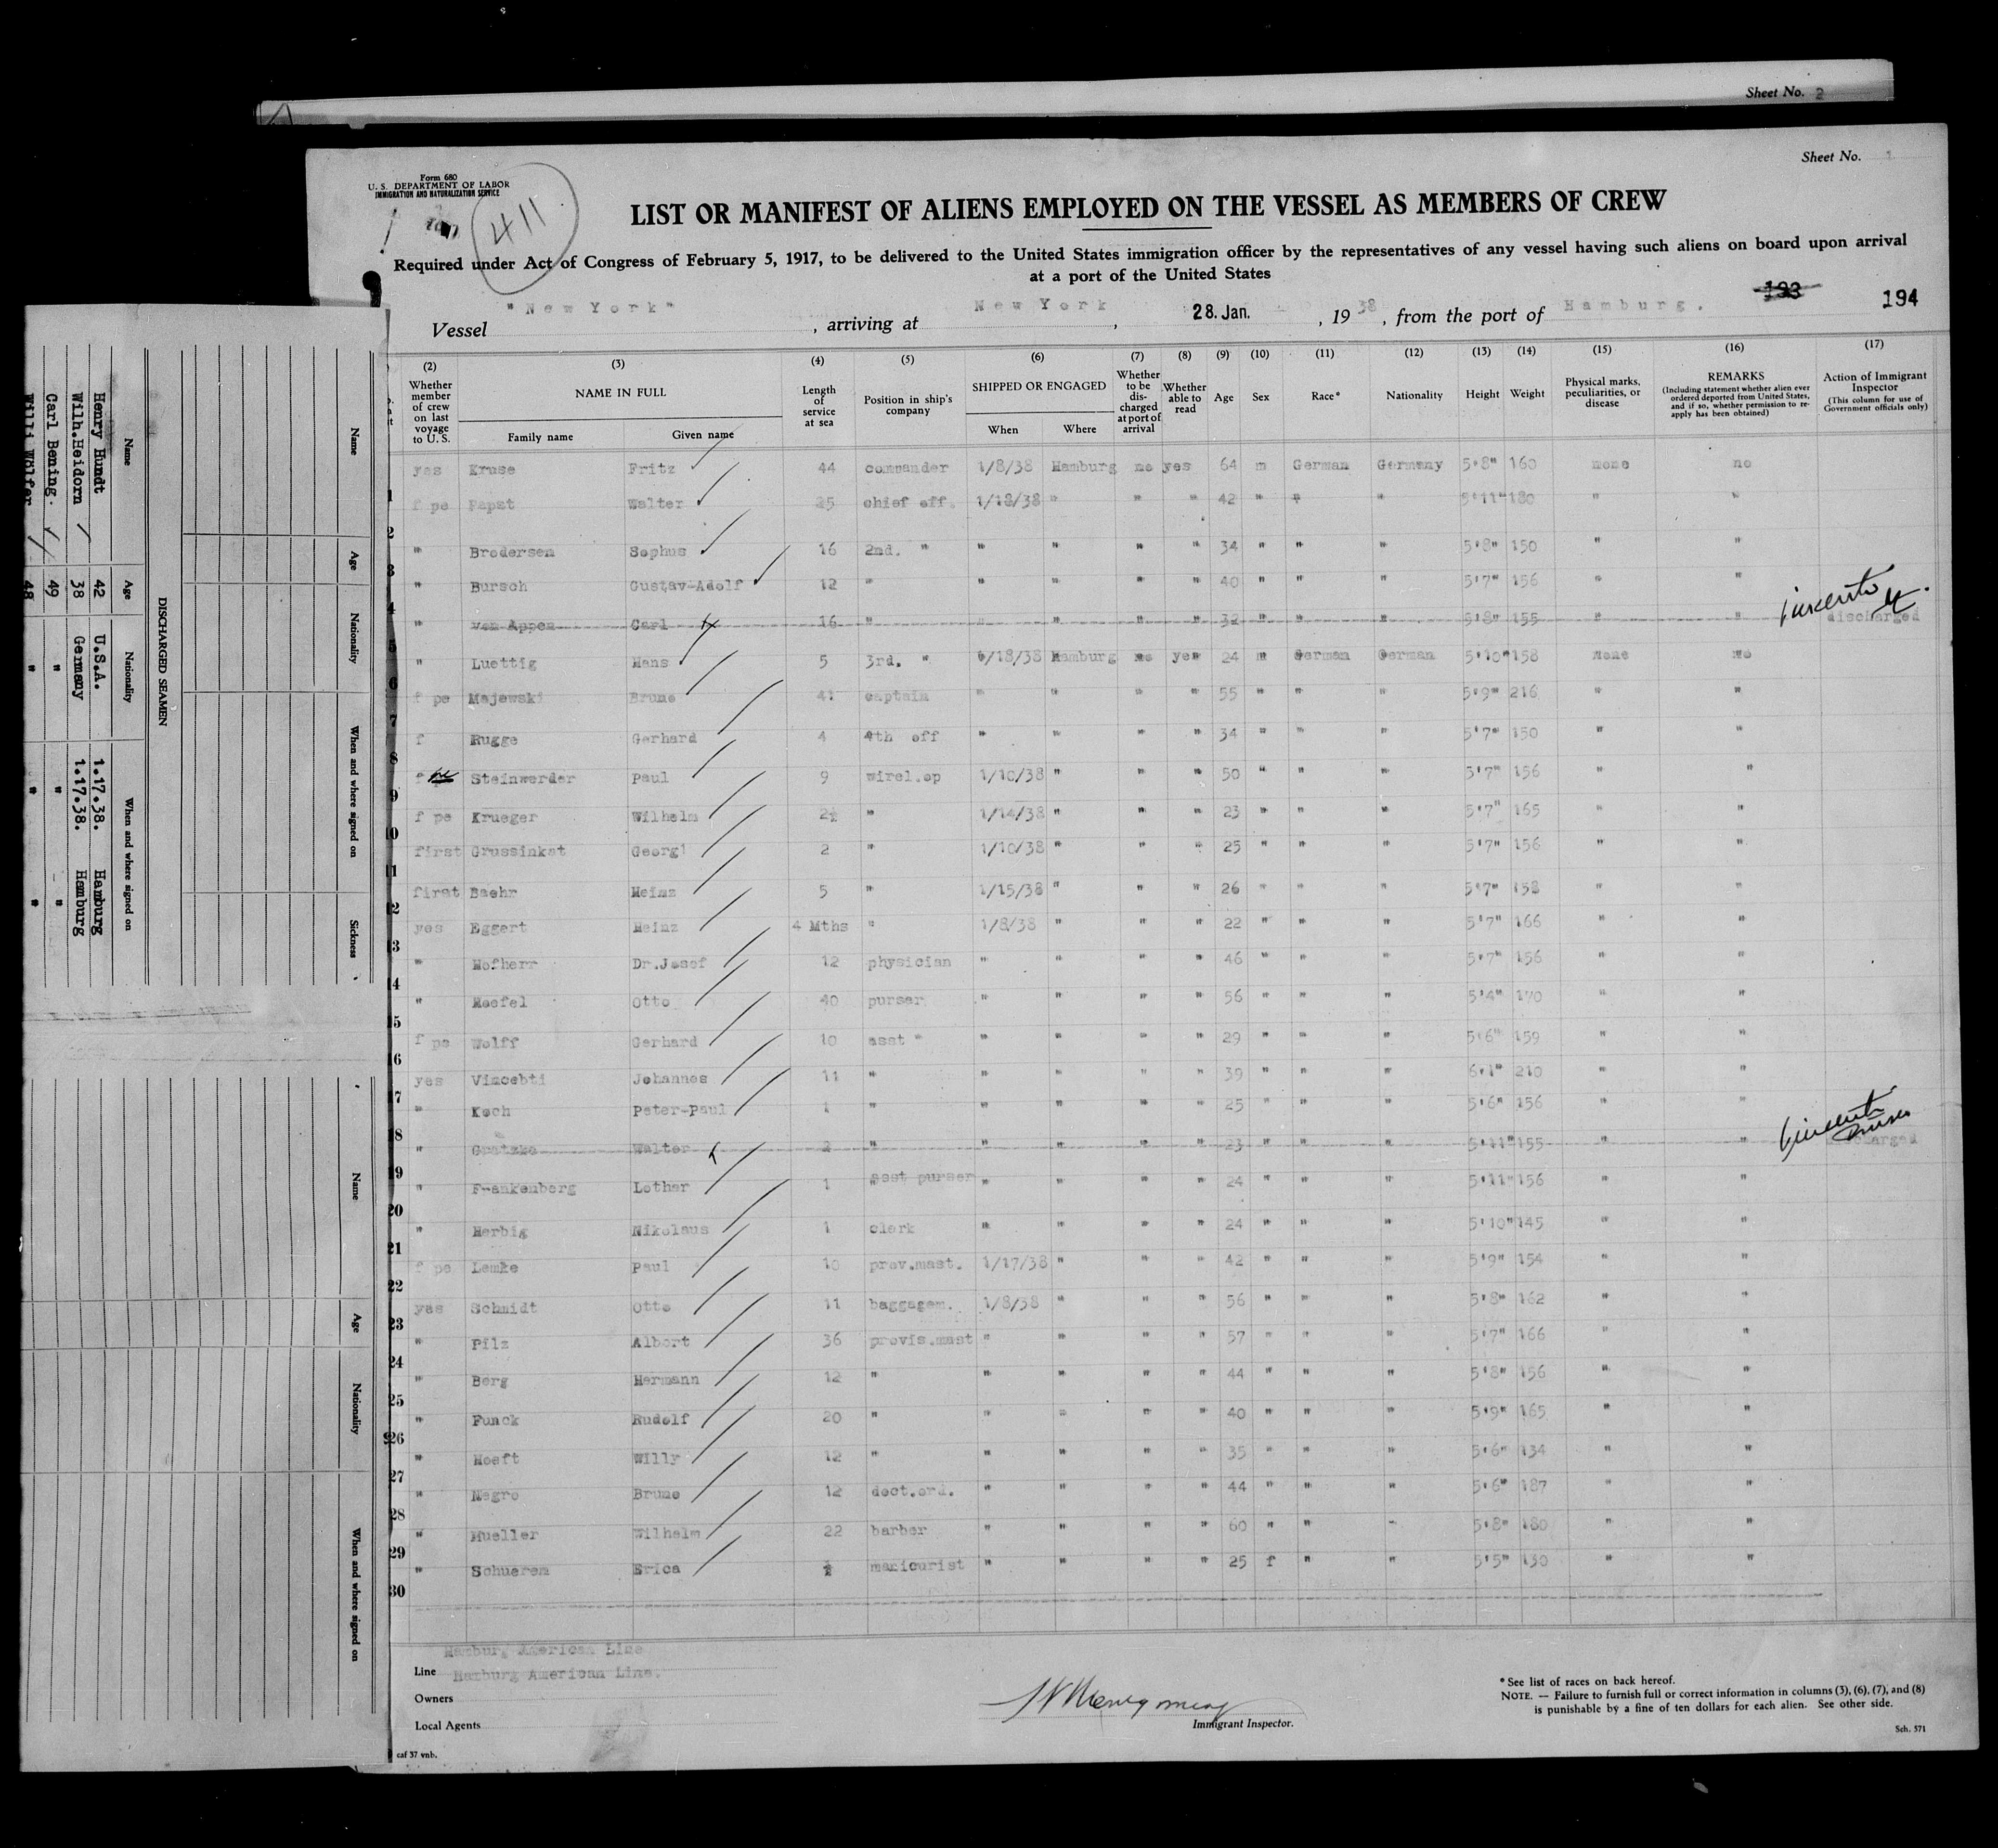 Sheet No. 2
Sheet No. 1
Form 680
U. S. DEPARTMENT OF LABOR
IMMIGRATION AND NATURALIZATION SERVICE
411
LIST OR MANIFEST OF ALIENS EMPLOYED ON THE VESSEL AS MEMBERS OF CREW
Required under Act of Congress of February 5, 1917, to be delivered to the United States immigration officer by the representatives of any vessel having such aliens on board upon arrival
at a port of the United States
193 194
Vessel "New York", arriving at New York, 28. Jan., 1938, from the port of Hamburg.
(2) (3) (4) (5) (6) (7) (8) (9) (10) (11) (12) (13) (14) (15) (16) (17)
Whether member of crew on last voyage to U. S.
NAME IN FULL
Family name Given name
Length of service at sea
Position in ship's company
SHIPPED OR ENGAGED
When Where
Whether to be discharged at port of arrival
Whether able to read
Age
Sex
Race*
Nationality
Height
Weight
Physical marks, peculiarities, or disease
REMARKS
(Including statement whether alien ever ordered deported from United States, and if so, whether permission to reapply has been obtained)
Action of Immigrant Inspector
(This column for use of Government officials only)
yes Kruse Fritz 44 commander 1/8/38 Hamburg no yes 64 m German Germany 5'8" 160 none no
1 f pe Papst Walter 25 chief off. 1/18/38 " " " 42 " " " 5'11" 180 " "
2
" Brodersen Sophus 16 2nd. " " " " " 34 " " " 5'8" 150 " "
3 " Bursch Gustav-Adolf 12 " " " " " 40 " " " 5'7" 156 " "
4 " von Appen Carl 16 " " " " " 32 " " " 5'8" 155 " " discharged
5 " Luettig Hans 5 3rd. " 1/18/38 Hamburg no yes 24 m German German 5'10" 158 none no
6 f pe Majewski Bruno 41 captain " " " " 55 " " " 5'9" 216 " "
7 f Rugge Gerhard 4 4th off " " " " 34 " " " 5'7" 150 " "
8 f pe Steinwerder Paul 9 wirel.op 1/10/38 " " " 50 " " " 5'7" 156 " "
9 f pe Krueger Wilhelm 2½ " 1/14/38 " " " 23 " " " 5'7" 165 " "
10 first Grussinkat Georg 2 " 1/10/38 " " " 25 " " " 5'7" 156 " "
11 first Baehr Heinz 5 " 1/15/38 " " " 26 " " " 5'7" 158 " "
12 yes Eggert Heinz 4 Mths " 1/8/38 " " " 22 " " " 5'7" 166 " "
13 " Hofherr Dr.Josef 12 physician " " " " 46 " " " 5'7" 156 " "
14 " Hoefel Otto 40 purser " " " " 56 " " " 5'4" 170 " "
15 f pe Wolff Gerhard 10 asst " " " " " 29 " " " 5'6" 159 " "
16 yes Vincebti Johannes 11 " " " " " 39 " " " 6'1" 210 " "
17 " Koch Peter-Paul 1 " " " " " 25 " " " 5'6" 156 " "
18 " Walter 2 " " " " " 23 " " " 5'11" 155 " " discharged
19 " Frankenberg Lothar 1 asst purser " " " " 24 " " " 5'11" 156 " "
20 " Herbig Nikolaus 1 clerk " " " " 24 " " " 5'10" 145 " "
21 f pe Lemke Paul 10 prov.mast. 1/17/38 " " " 42 " " " 5'9" 154 " "
22 yes Schmidt Otto 11 baggagem. 1/8/38 " " " 56 " " " 5'8" 162 " "
23 " Pilz Albert 36 provis.mast " " " " 57 " " " 5'7" 166 " "
24 " Berg Hermann 12 " " " " " 44 " " " 5'8" 156 " "
25 " Funck Rudolf 20 " " " " " 40 " " " 5'9" 165 " "
26 " Hoeft Willy 12 " " " " " 35 " " " 5'6" 134 " "
27 " Negro Bruno 12 dect.ord. " " " " 44 " " " 5'6" 187 " "
28 " Mueller Wilhelm 22 barber " " " " 60 " " " 5'8" 180 " "
29 " Schueren Erica ½ manicurist " " " " 25 f " " 5'5" 130 " "
30
Hamburg American Line
Line Hamburg American Line.
Owners
Local Agents
Immigrant Inspector.
* See list of races on back hereof.
NOTE. — Failure to furnish full or correct information in columns (3), (6), (7), and (8)
is punishable by a fine of ten dollars for each alien. See other side.
Sch. 571
caf 37 vnb.
Name Age Nationality When and where signed on Sickness
DISCHARGED SEAMEN
Name Age Nationality When and where signed on
Henry Hundt 42 U.S.A. 1.17.38. Hamburg
Wilh.Heidorn 38 Germany 1.17.38. Hamburg
Carl Bening. 49 " " "
Willi Wölfer 48 " " "
Name Age Nationality When and where signed on